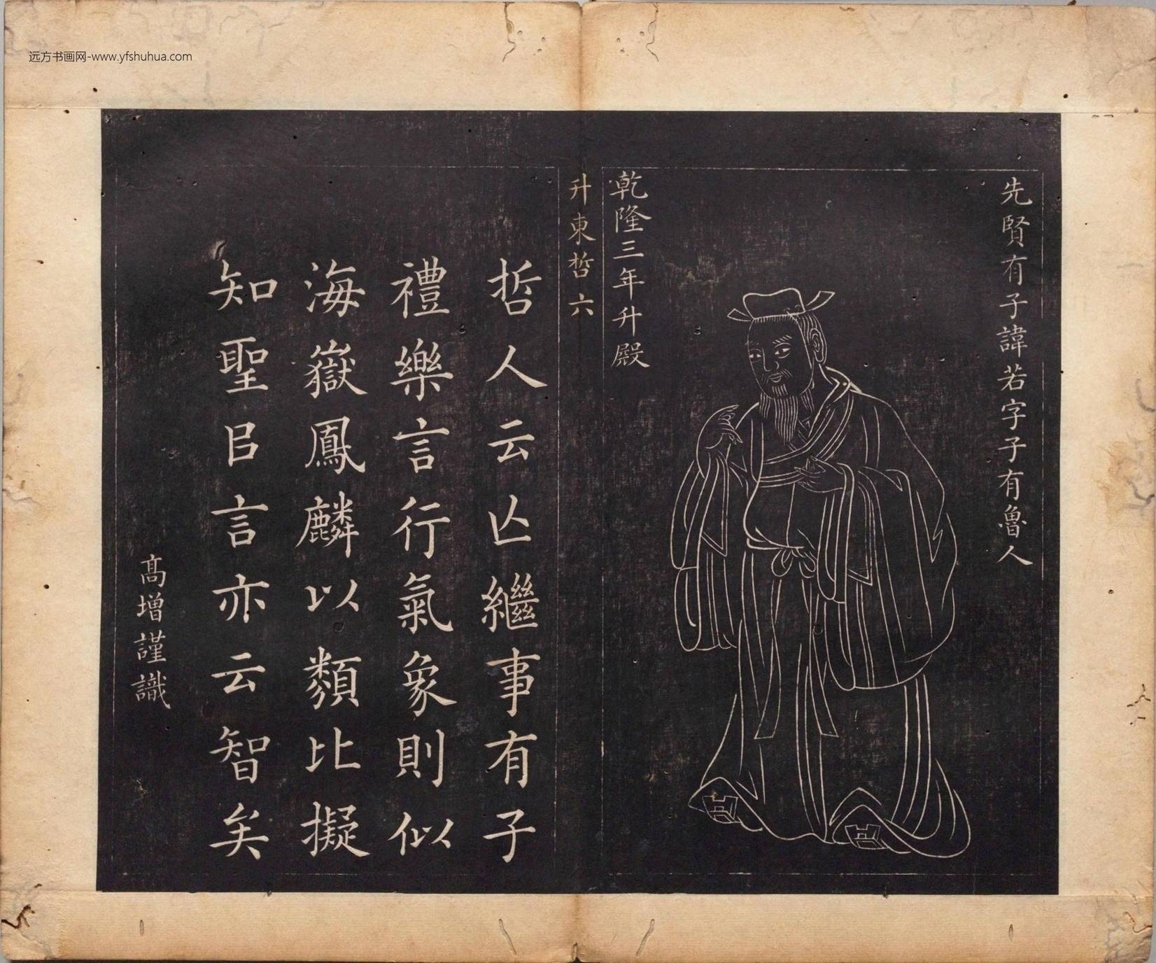 远方书画网-www.yfshuhua.com
先賢有子諱若字子有魯人
乾隆三年升殿
升東哲六
哲人云亾繼事有子
禮樂言行氣象則似
海嶽鳳麟以類比擬
知聖㠯言亦云智矣
高增謹識